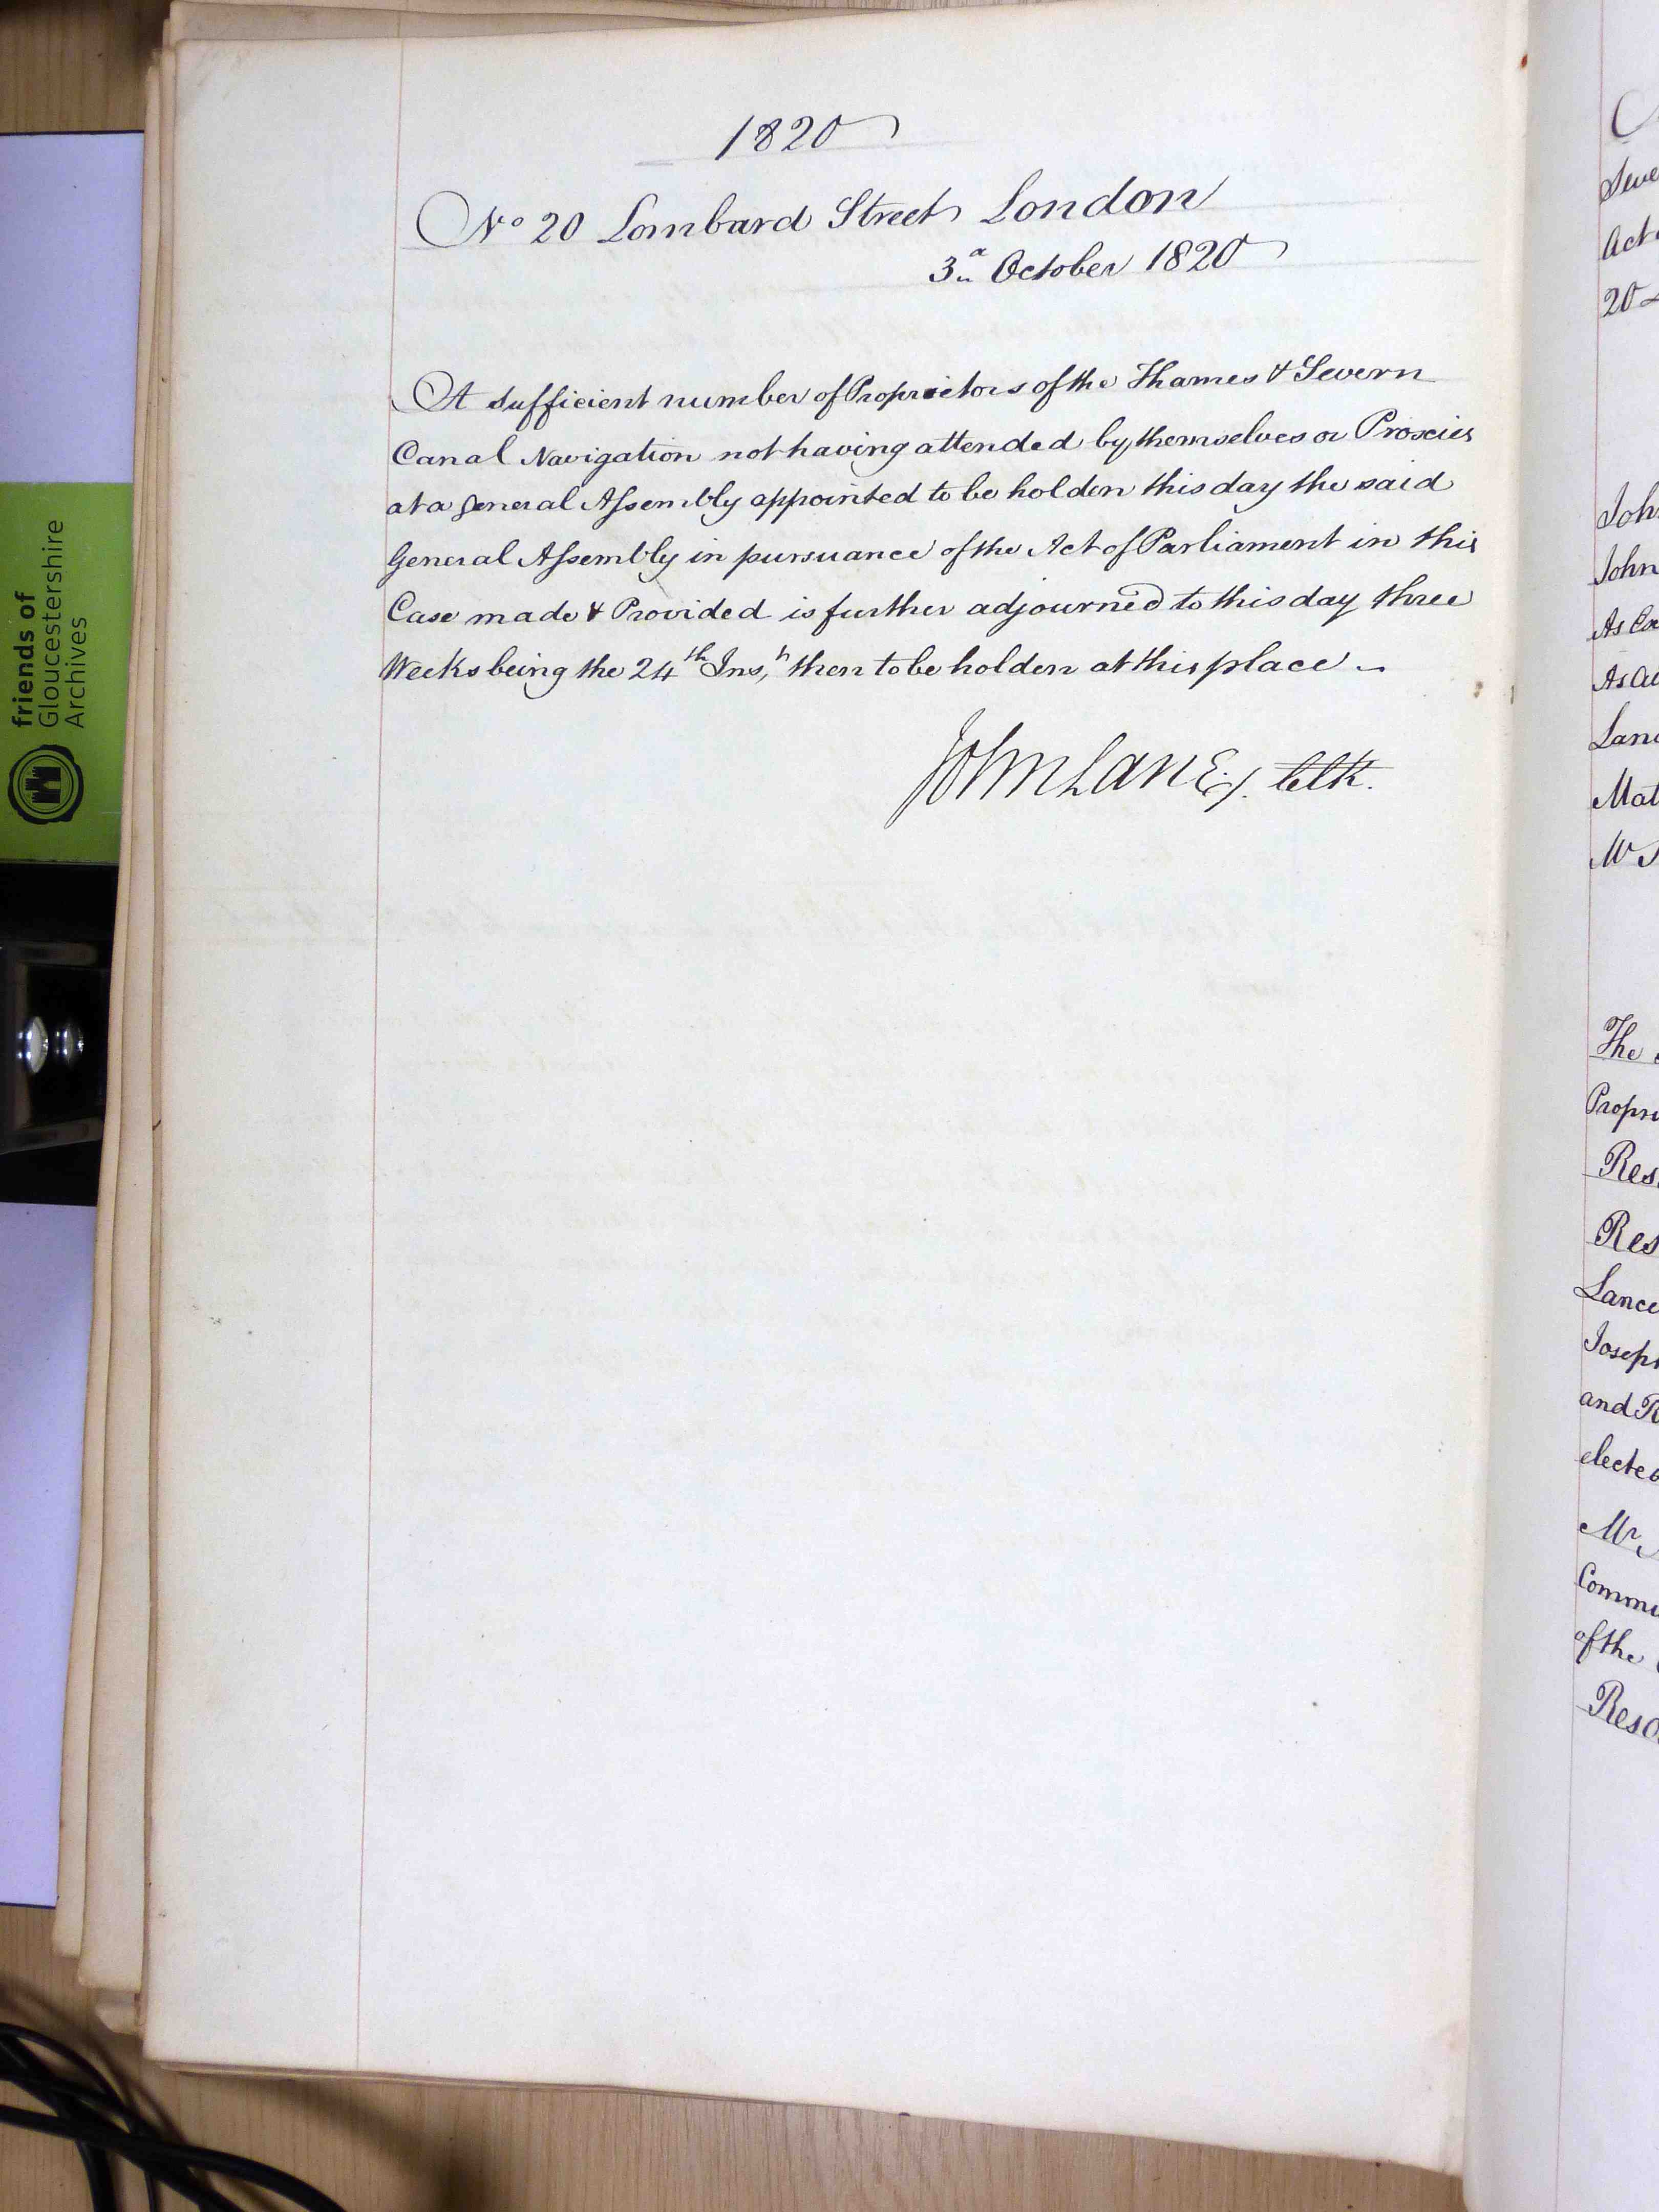 1820
No 20 Lombard Street London
3d October 1820
A sufficient number of Proprietors of the Thames & Severn
Canal Navigation not having attended by themselves or Proxies
at a General Assembly appointed to be holden this day the said
General Assembly in pursuance of the Act of Parliament in this
Case made & Provided is further adjourned to this day three
Weeks being the 24th Inst, then to be holden at this place
John Lane Clk.
friends of
Gloucestershire
Archives
Act
20
John
John
As
As
Lane
Mat
The
Propri
Res
Res
Lance
Joseph
and R
elected
Mr
Commi
of the
Reso